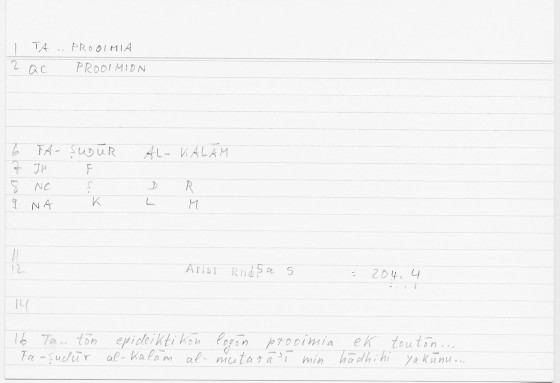 1 TA .. PROOIMIA
2 QC PROOIMION
6 FA- ṢUDŪR AL- KALĀM
7 JP F
8 NC Ṣ D R
9 NA K L M
11
12 Arist Rhet 5a 5 = 204.4
14
16 Ta.. tōn epideiktikōn logōn prooimia ek toutōn...
Fa-ṣudūr al-kalām al- min hādhihi yakūnu...